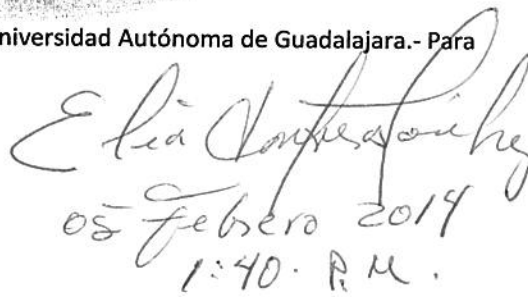 niversidad Autónoma de Guadalajara.- Para
Elia
05 Febrero 2014
1:40. P.M.